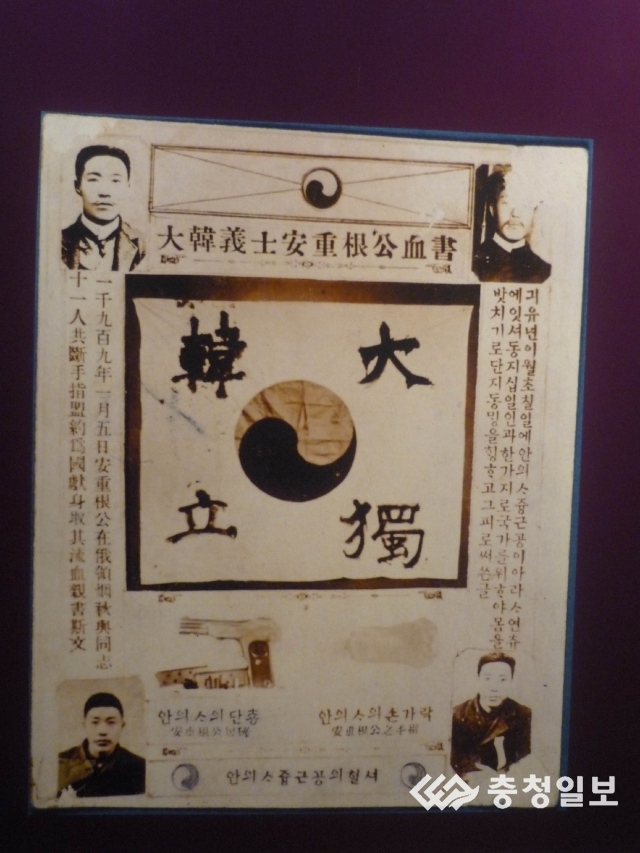 大韓義士安重根公血書
大韓
獨立
긔유년이월초칠일에안의ᄉ즁근공이아라ᄉ연츄
에잇셔동지십일인과한가지로국가를위ᄒᆞ야몸을
밧치기로단지동밍을ᄒᆡᆼᄒᆞ고그피로써쓴글
一千九百九年一月五日安重根公在俄領烟秋與同志
十一人共斷手指盟約爲國獻身取其流血親書斯文
안의ᄉ의단총
안의ᄉ의손가락
安重根公之手指
안의ᄉ즁근공의혈셔
충청일보